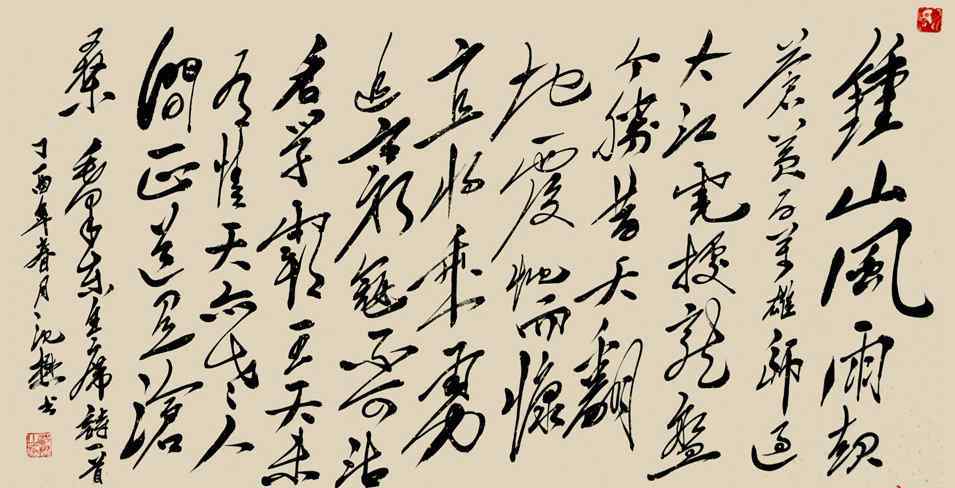 鍾山風雨起
蒼黄百萬雄師過
大江虎據龍盤
今勝昔天翻
地覆慨而慷
宜將剩勇
追窮寇不可沽
名學霸王天若
有情天亦老人
間正道是滄
桑
毛澤東主席詩一首
丁酉年春月沈書